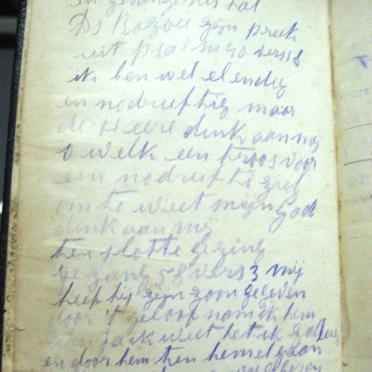 en gevangenis hat
Ds Bazou zijn preek
uit psalm 40 vers 18
ik ben wel elendig
en nodruftig maar
de Heere denk aan mij
o welk een troos voor
een nodruftig ziel
om te weet mijn God
denk aan mij
ten slotte gezing
gezang 58 vers 3 mij
heef hij zijn zoon gegeven
door 't geloof nam ik hem
aan Ja ik weet het ik zal leve
en door hem ten hemel gaan